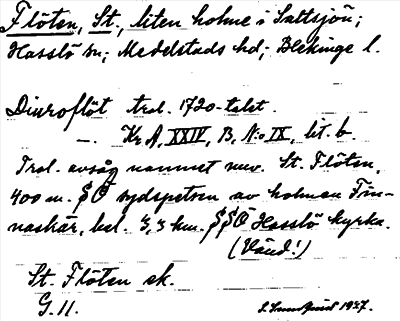 Flöten, St., liten holme i Saltsjön;
Hasslö sn; Medelstads hd; Blekinge l.
Diuroflöt trol. 1720-talet.
—. Kr. A, XXIV, B, N:o IX, lit. b.
Trol. avsåg namnet nuv. St. Flöten,
400 m. SO sydspetsen av holmen Tin-
naskär, bel. 3,3 km. SSO Hasslö kyrka.
(Vänd!)
St. Flöten ek.
G. 11. 1927.